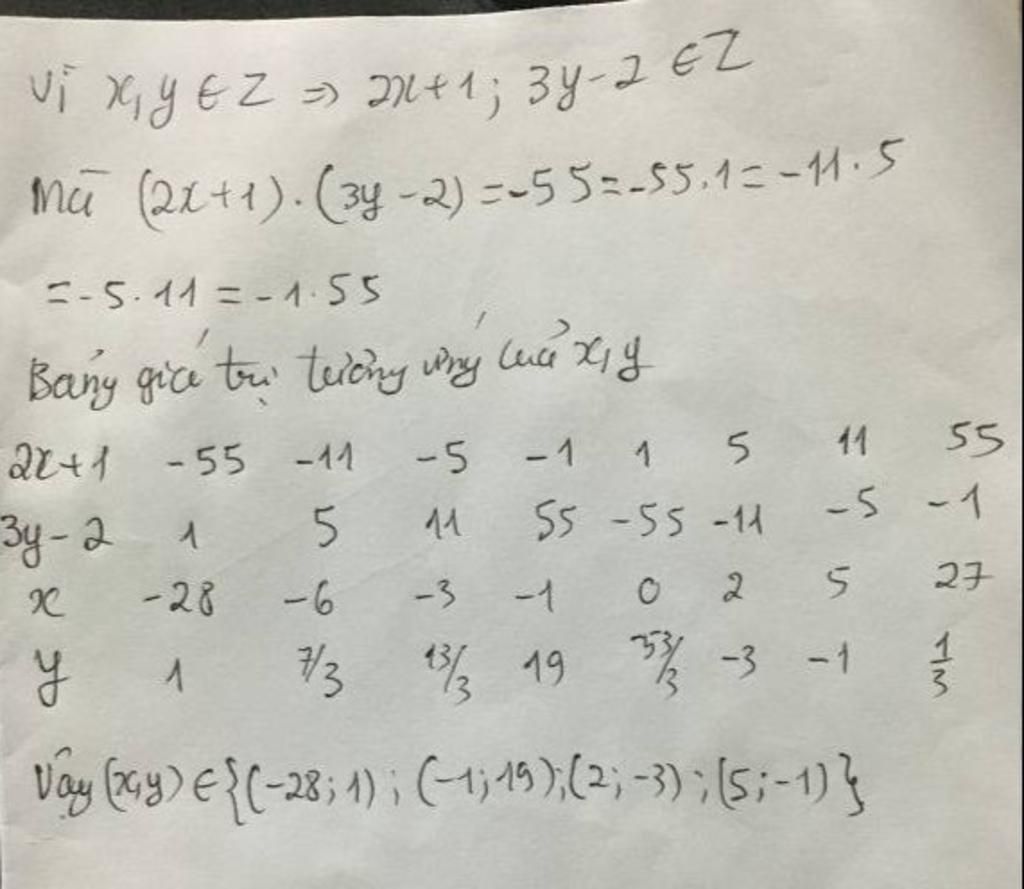 Vì x,y ∈ Z => 2x+1; 3y-2 ∈ Z
Mà (2x+1).(3y-2)=-55=-55.1=-11.5
=-5.11=-1.55
Bảng giá trị tương ứng của x,y
2x+1 -55 -11 -5 -1 1 5 11 55
3y-2 1 5 11 55 -55 -11 -5 -1
x -28 -6 -3 -1 0 2 5 27
y 1 7/3 13/3 19 -53/3 -3 -1 1/3
Vậy (x,y) ∈ {(-28;1); (-1;19);(2;-3);(5;-1)}